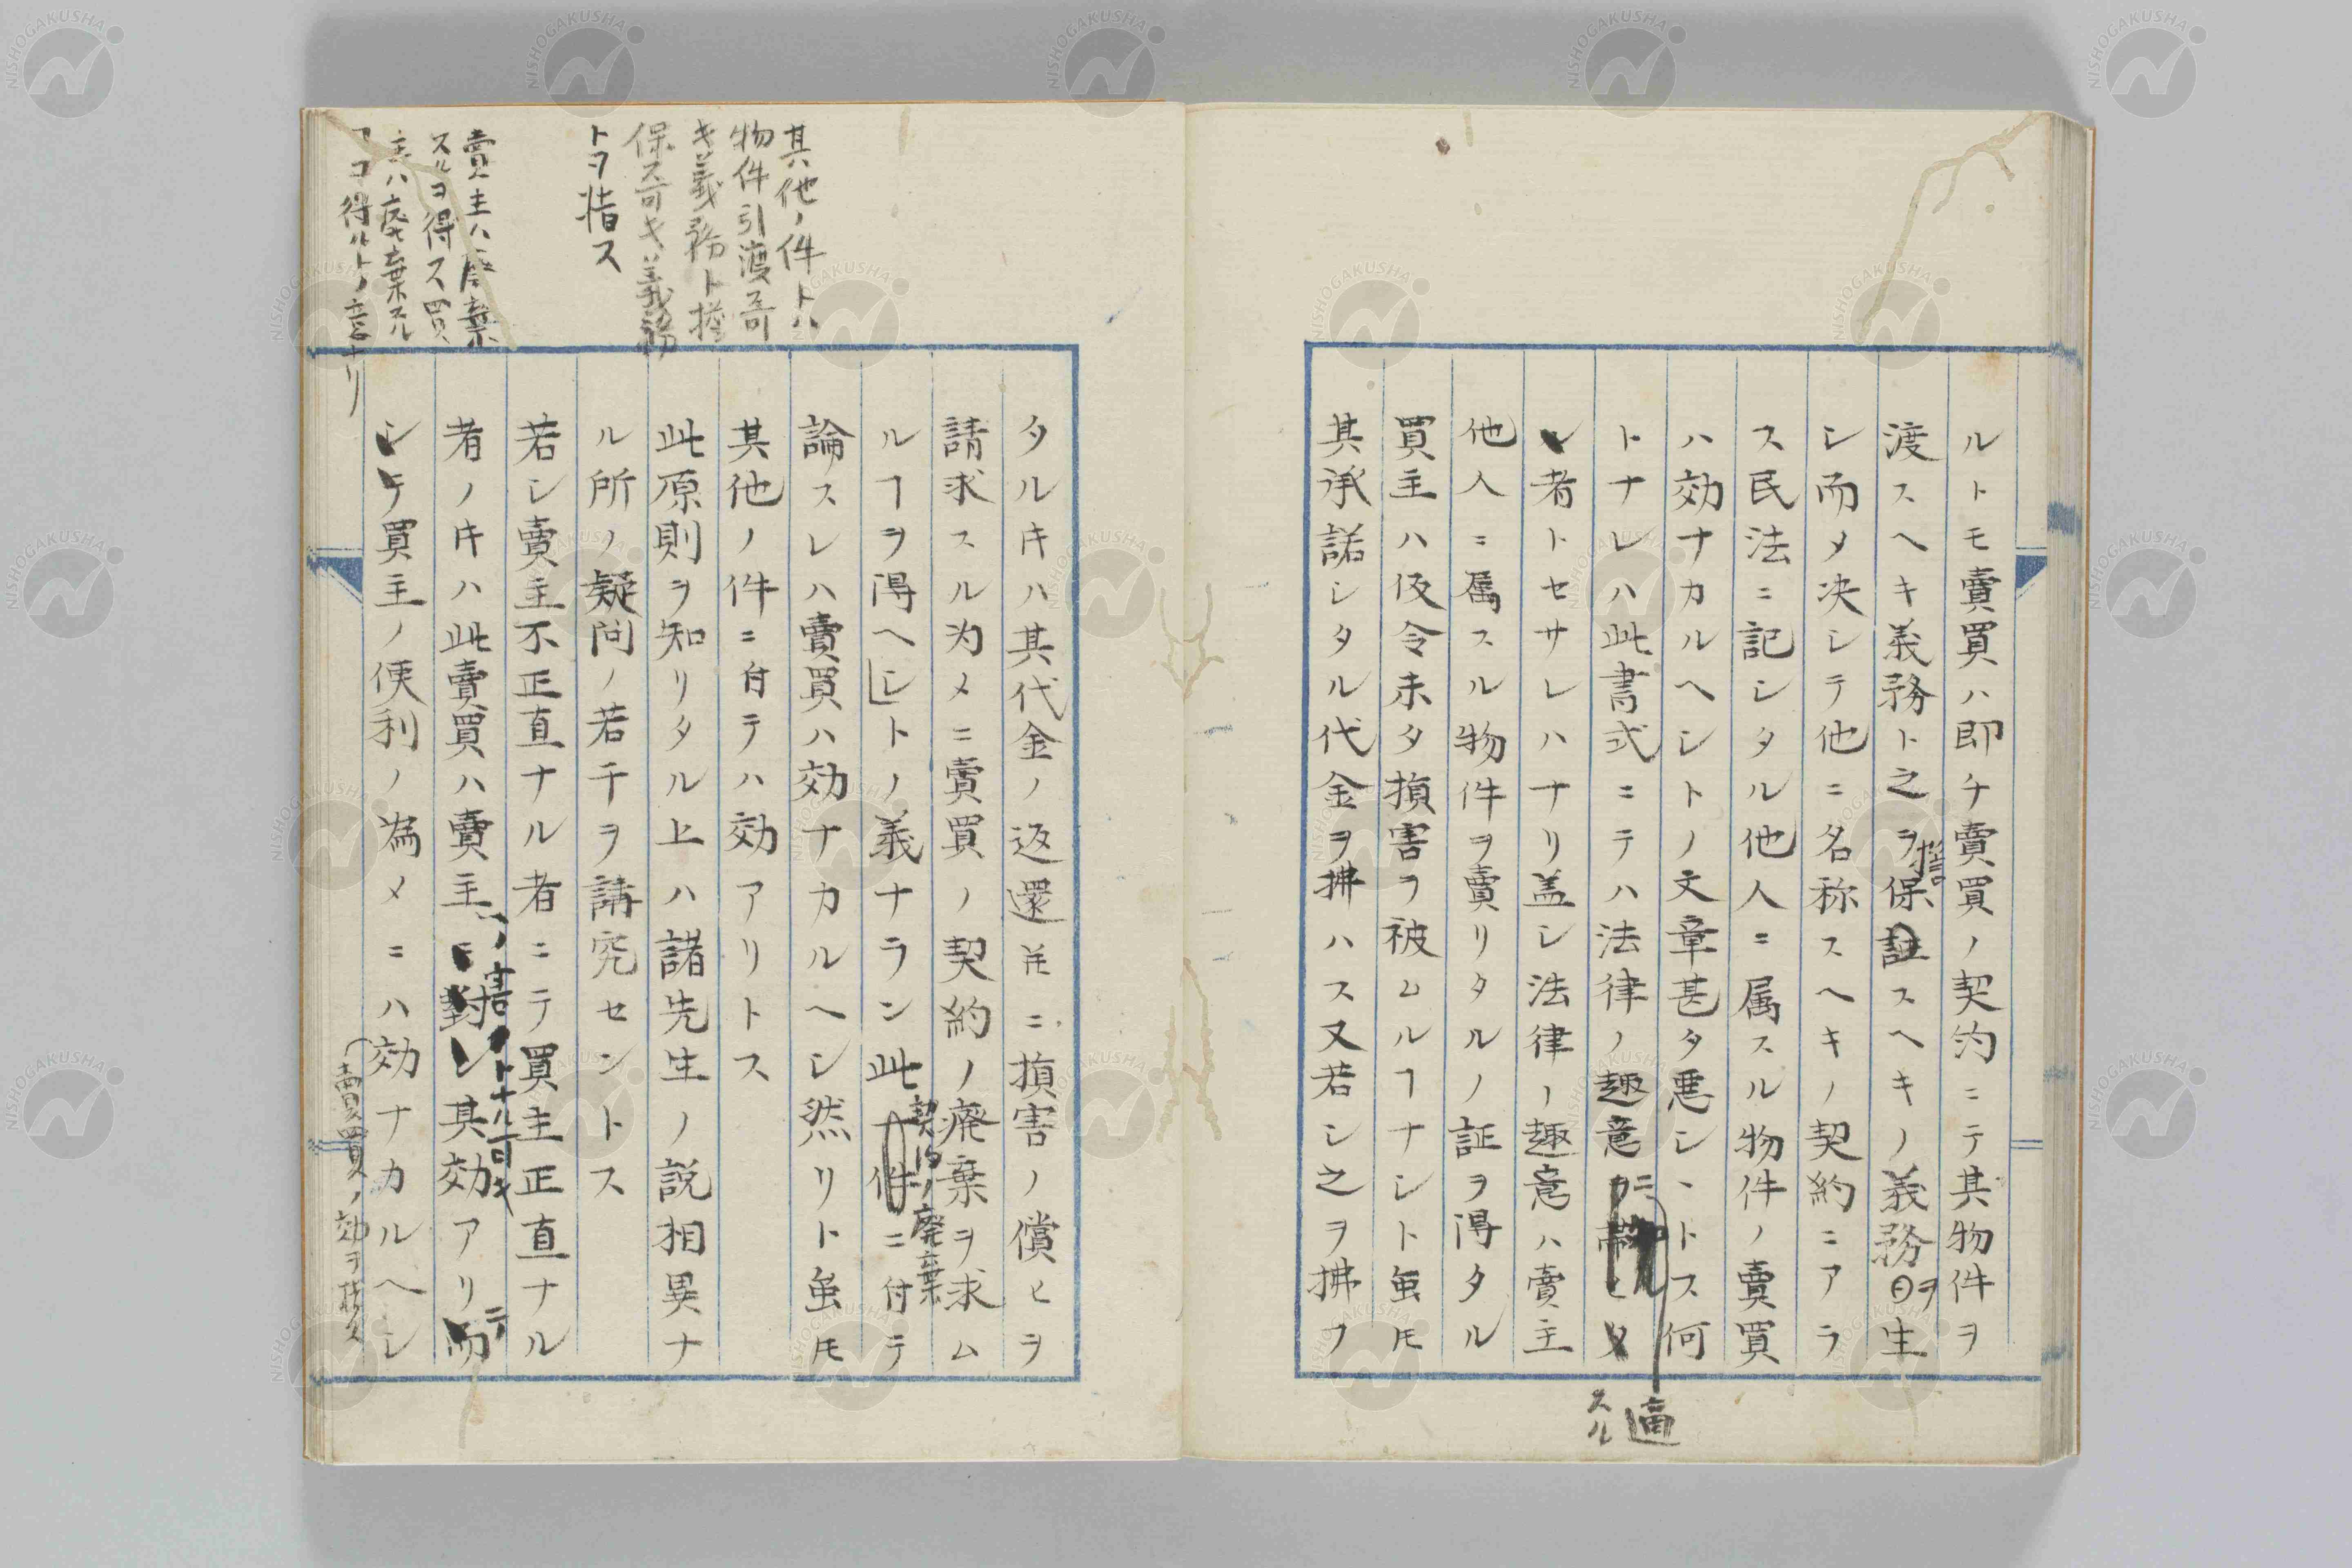 ルトモ賣買ハ即チ賣買ノ契約ニテ其物件ヲ
渡スヘキ義務ト之ヲ保証スヘキノ義務ヲ生
擔
シ而メ决シテ他ニ名称スヘキノ契約ニアラ
ス民法ニ記シタル他人ニ属スル物件ノ賣買
ハ効ナカルヘシトノ文章甚タ悪シヽトス何
トナレハ此書式ニテハ法律ノ趣意ニ
適
スル
者トセサレハナリ盖シ法律ノ趣意ハ賣主
他人ニ属スル物件ヲ賣リタルノ証ヲ得タル
買主ハ仮令未タ損害ヲ被ムルヿナシト雖𪜈
其承諾シタル代金ヲ拂ハス又若シ之ヲ拂フ
其他ノ件トハ
物件引渡ス可
キ義務ト擔
保ス可キ義務
トヲ指ス
賣主ハ廃棄
スルヲ得ス買
主ハ廃棄スル
ヿヲ得ルトノ意ナリ
タル𪜈ハ其代金ノ返還并ニ損害ノ償ヒヲ
請求スル为メニ賣買ノ契約ノ廃棄ヲ求ム
ルヿヲ得ヘシトノ義ナラン此件ニ付テ
契約ノ廃棄
論スレハ賣買ハ効ナカルヘシ然リト雖𪜈
其他ノ件ニ付テハ効アリトス
此原則ヲ知リタル上ハ諸先生ノ説相異ナ
ル所ノ疑問ノ若干ヲ講究セントス
若シ賣主不正直ナル者ニテ買主正直ナル
者ノ𪜈ハ此賣買ハ賣主ニ對シ其効アリ而
ノ害トナル可キ
テ
シテ買主ノ便利ノ為メニハ効ナカルヘシ
(賣買ノ効ヲ指ス